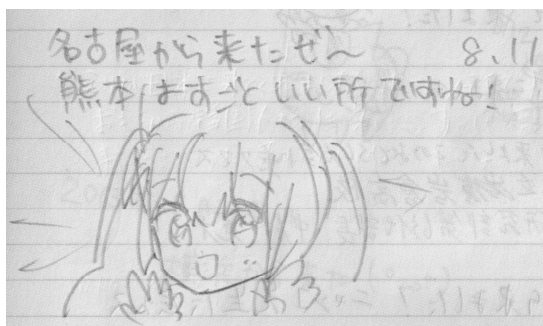 名古屋から来たぜ〜 8.11
熊本まずごといい所ですね!